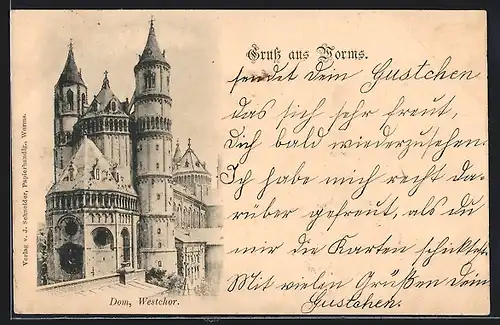 Gruß aus Worms.
sendet dem Gustchen
das sich sehr freut,
Dich bald wiederzusehen.
Ich habe mich recht da-
rüber gefreut, als du
mir die Karten schicktest.
Mit vielen Grüßen Dein
Gustchen.
Verlag v. J. Schneider, Papierhandlg., Worms.
Dom, Westchor.